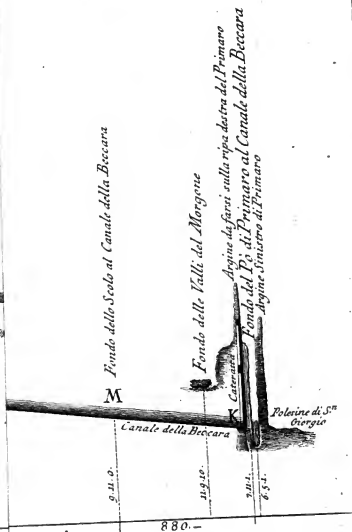 Fondo dello Scolo al Canale della Beccara
Fondo delle Valli del Morgone
Argine da farsi sulla ripa destra del Primaro
Fondo del Pò di Primaro al Canale della Beccara
Argine Sinistro di Primaro
M
Cateratta
K
Canale della Beccara
Polesine di S.n
Giorgio
9.11.0.
11.9.10.
7.11.1.
6.5.1.
880.–